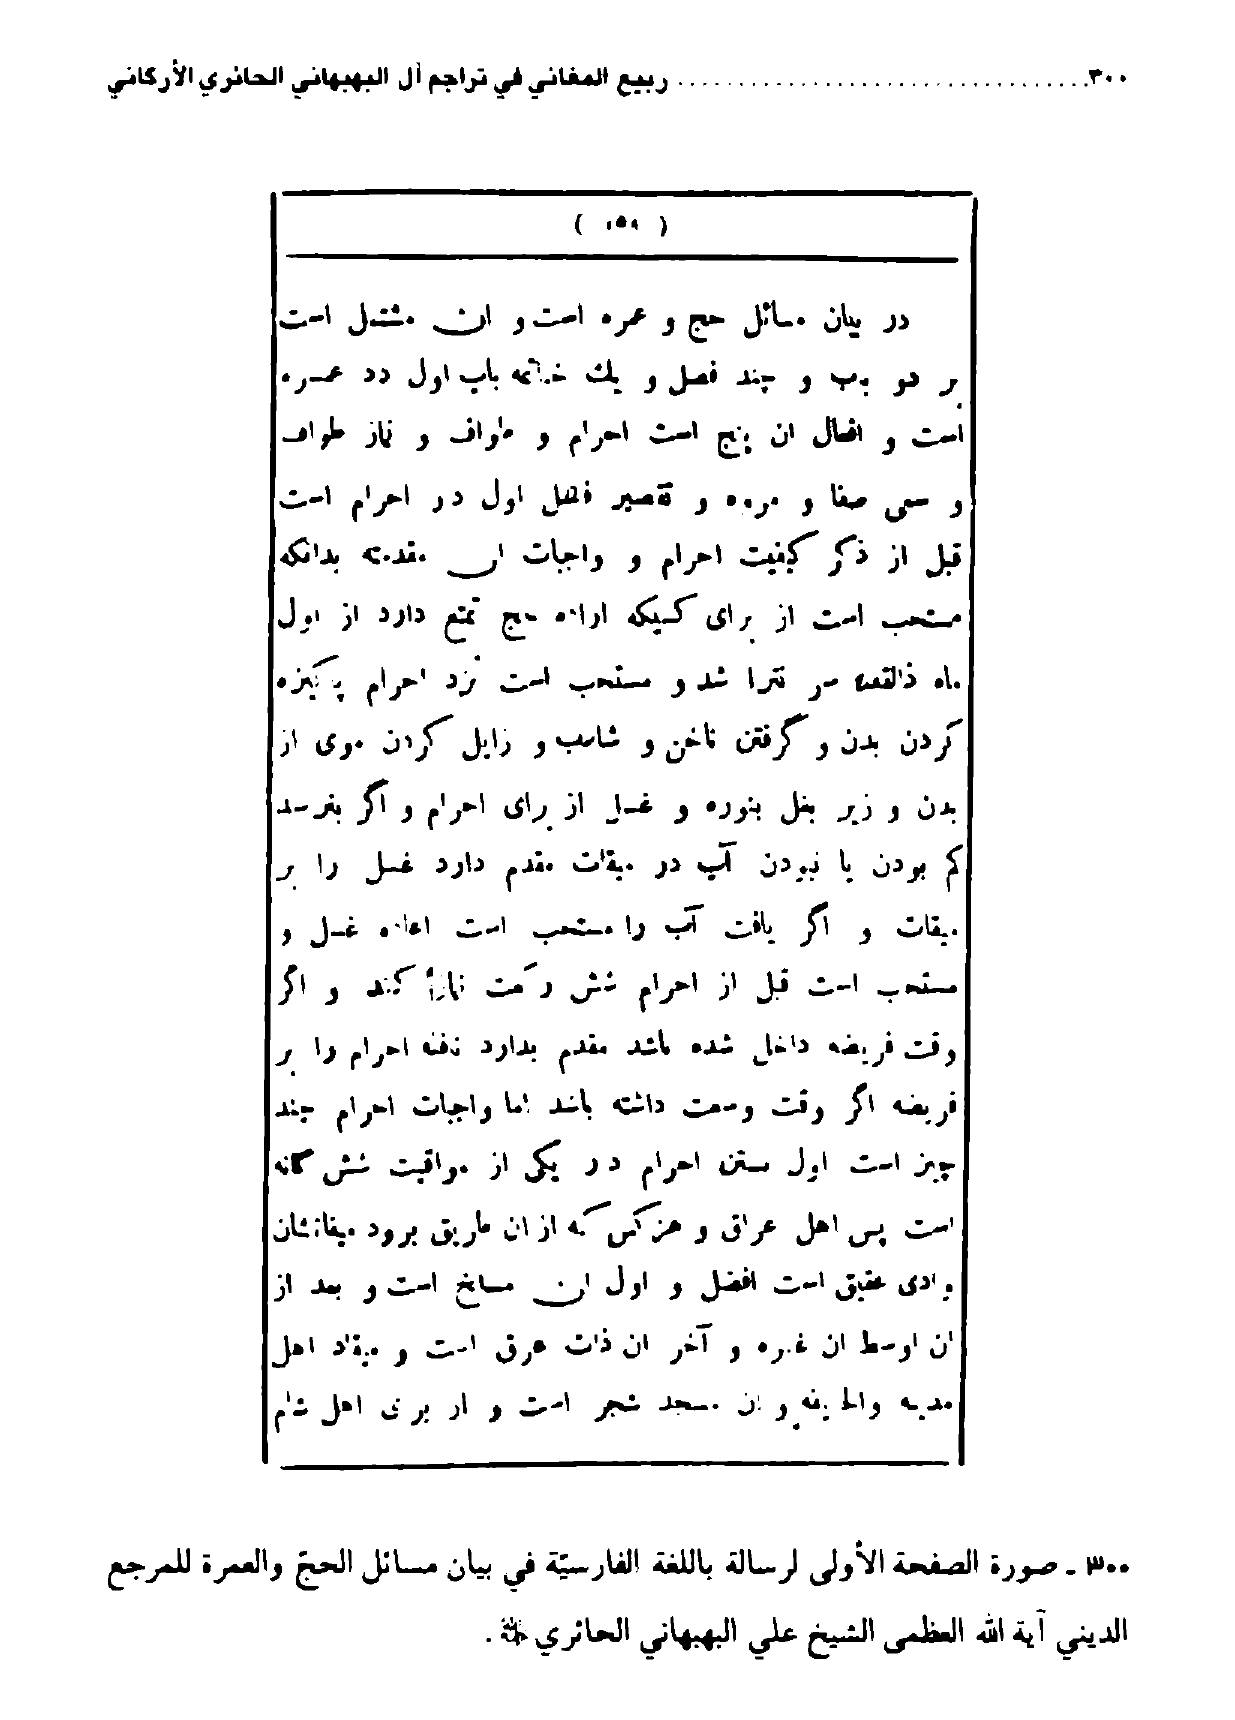 ٣٠٠ ................................ ربيع المغاني في تراجم آل البهبهاني الحائري الأركاني
( ١٥٩ )
در بیان مسائل حج و عمره است و ان مشتمل است
بر دو باب و چند فصل و یك خاتمه باب اول در عمره
است و افعال ان پنج است احرام و طواف و نماز طواف
و سعی صفا و مروه و تقصیر فصل اول در احرام است
قبل از ذکر کیفیت احرام و واجبات ان مقدمته بدانکه
مستحب است از برای کسیکه اراده حج تمتع دارد از اول
ماه ذالقعده سر نتراشد و مستحب است نزد احرام پاکیزه
کردن بدن و گرفتن ناخن و شارب و زایل کردن موی از
بدن و زیر بغل بنوره و غسل از برای احرام و اگر بترسد
کم بودن یا نبودن آب در میقات مقدم دارد غسل را بر
میقات و اگر یافت آب را مستحب است اعاده غسل و
مستحب است قبل از احرام شش رکعت نماز کند و اگر
وقت فریضه داخل شده باشد مقدم بدارد نافله احرام را بر
فریضه اگر وقت وسعت داشته باشد اما واجبات احرام چند
چیز است اول بستن احرام در یکی از مواقیت شش گانه
است پس اهل عراق و هرکس که از ان طریق برود میقاتشان
وادی عقیق است افضل و اول ان مسلخ است و بعد از
ان اوسط ان غمره و آخر ان ذات عرق است و میقات اهل
مدینه والحلیفه و ان مسجد شجر است و از برای اهل شام
٣٠٠ ـ صورة الصفحة الأولى لرسالة باللغة الفارسيّة في بيان مسائل الحجّ والعمرة للمرجع
الديني آية الله العظمى الشيخ علي البهبهاني الحائري .